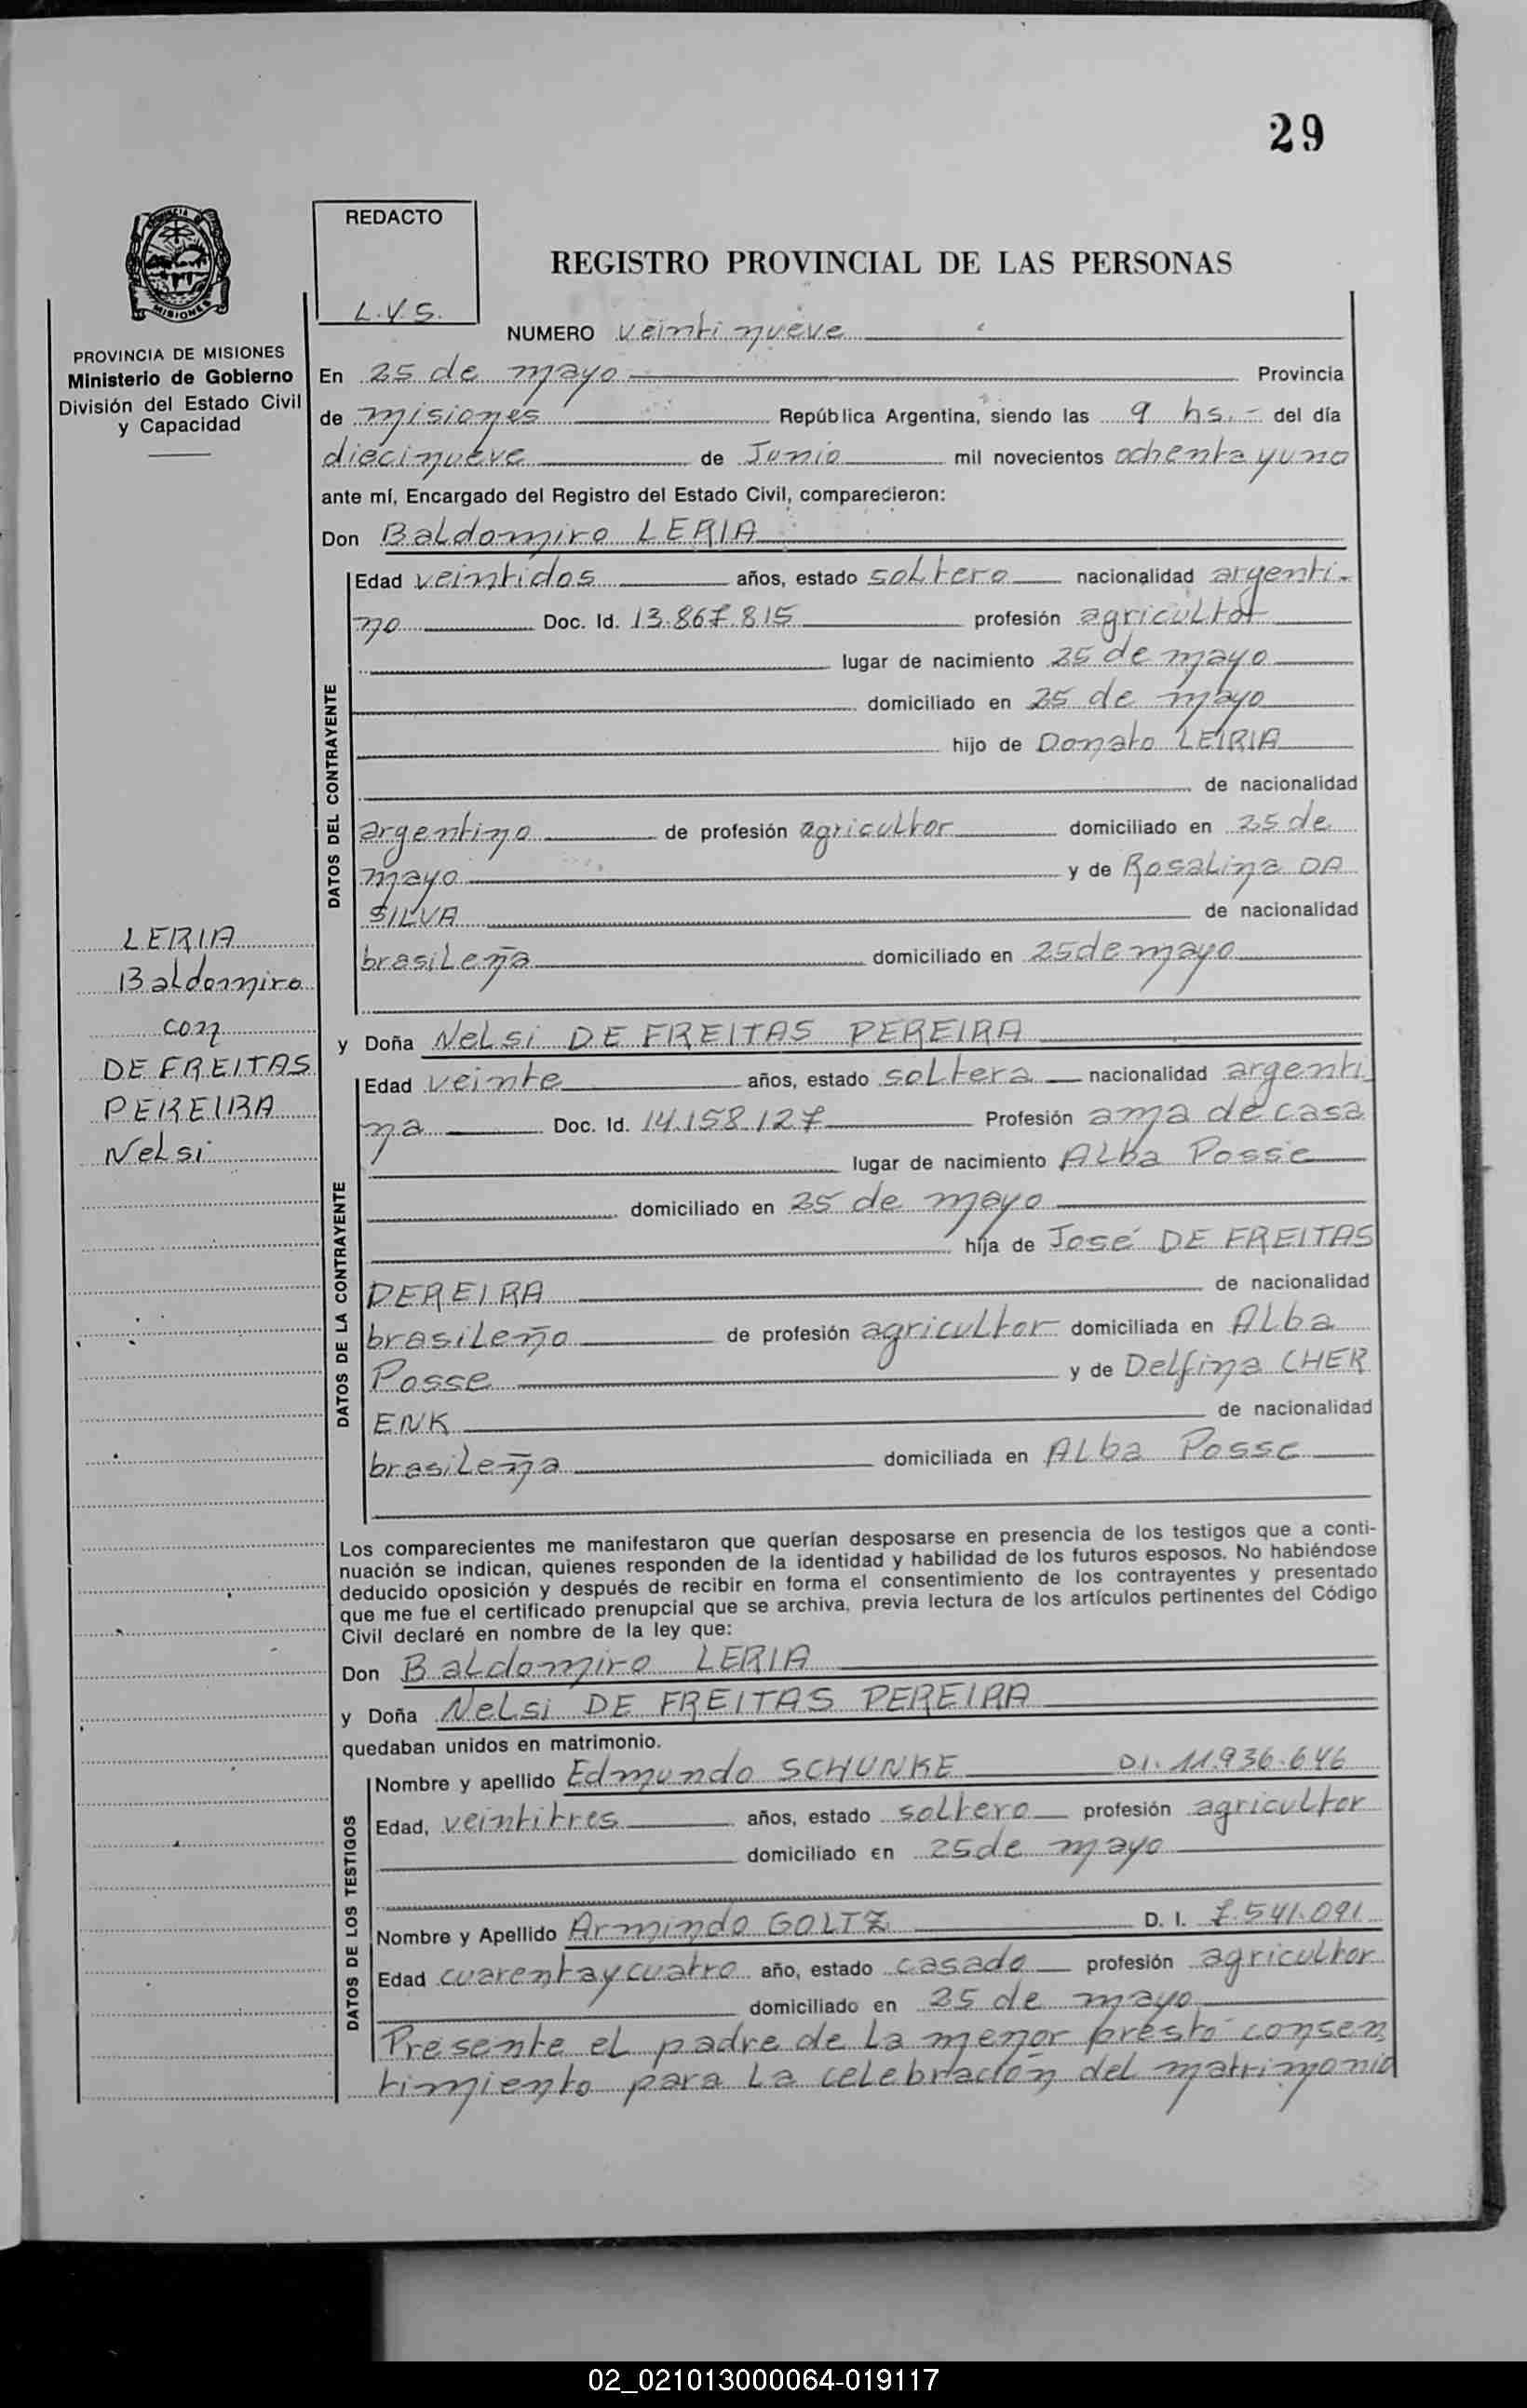 29
REDACTO
L.Y.S.
REGISTRO PROVINCIAL DE LAS PERSONAS
MISIONES
PROVINCIA DE MISIONES
Ministerio de Gobierno
División del Estado Civil
y Capacidad
NUMERO veintinueve
En 25 de mayo Provincia
de misiones República Argentina, siendo las 9 hs.- del día
diecinueve de Junio mil novecientos ochenta y uno
ante mí, Encargado del Registro del Estado Civil, comparecieron:
Don Baldomiro LERIA
DATOS DEL CONTRAYENTE
Edad veintidos años, estado soltero nacionalidad argenti-
no Doc. Id. 13.867.815 profesión agricultor
lugar de nacimiento 25 de mayo
domiciliado en 25 de mayo
hijo de Donato LEIRIA
de nacionalidad
argentino de profesión agricultor domiciliado en 25 de
mayo y de Rosalina DA
SILVA de nacionalidad
brasileña domiciliado en 25 de mayo
LERIA
Baldomiro
con
DE FREITAS
PEREIRA
Nelsi
y Doña Nelsi DE FREITAS PEREIRA
DATOS DE LA CONTRAYENTE
Edad veinte años, estado soltera nacionalidad argenti-
na Doc. Id. 14.158.127 Profesión ama de casa
lugar de nacimiento Alba Posse
domiciliado en 25 de mayo
hija de José DE FREITAS
PEREIRA de nacionalidad
brasileño de profesión agricultor domiciliada en Alba
Posse y de Delfina CHER
ENK de nacionalidad
brasileña domiciliada en Alba Posse
Los comparecientes me manifestaron que querían desposarse en presencia de los testigos que a conti-
nuación se indican, quienes responden de la identidad y habilidad de los futuros esposos. No habiéndose
deducido oposición y después de recibir en forma el consentimiento de los contrayentes y presentado
que me fue el certificado prenupcial que se archiva, previa lectura de los artículos pertinentes del Código
Civil declaré en nombre de la ley que:
Don Baldomiro LERIA
y Doña Nelsi DE FREITAS PEREIRA
quedaban unidos en matrimonio.
DATOS DE LOS TESTIGOS
Nombre y apellido Edmundo SCHUNKE DI. 11.936.646
Edad, veintitres años, estado soltero profesión agricultor
domiciliado en 25 de mayo
Nombre y Apellido Armindo GOLTZ D. I. 7.541.091
Edad cuarenta y cuatro año, estado casado profesión agricultor
domiciliado en 25 de mayo
Presente el padre de la menor prestó consen
timiento para la celebración del matrimonio
02_021013000064-019117